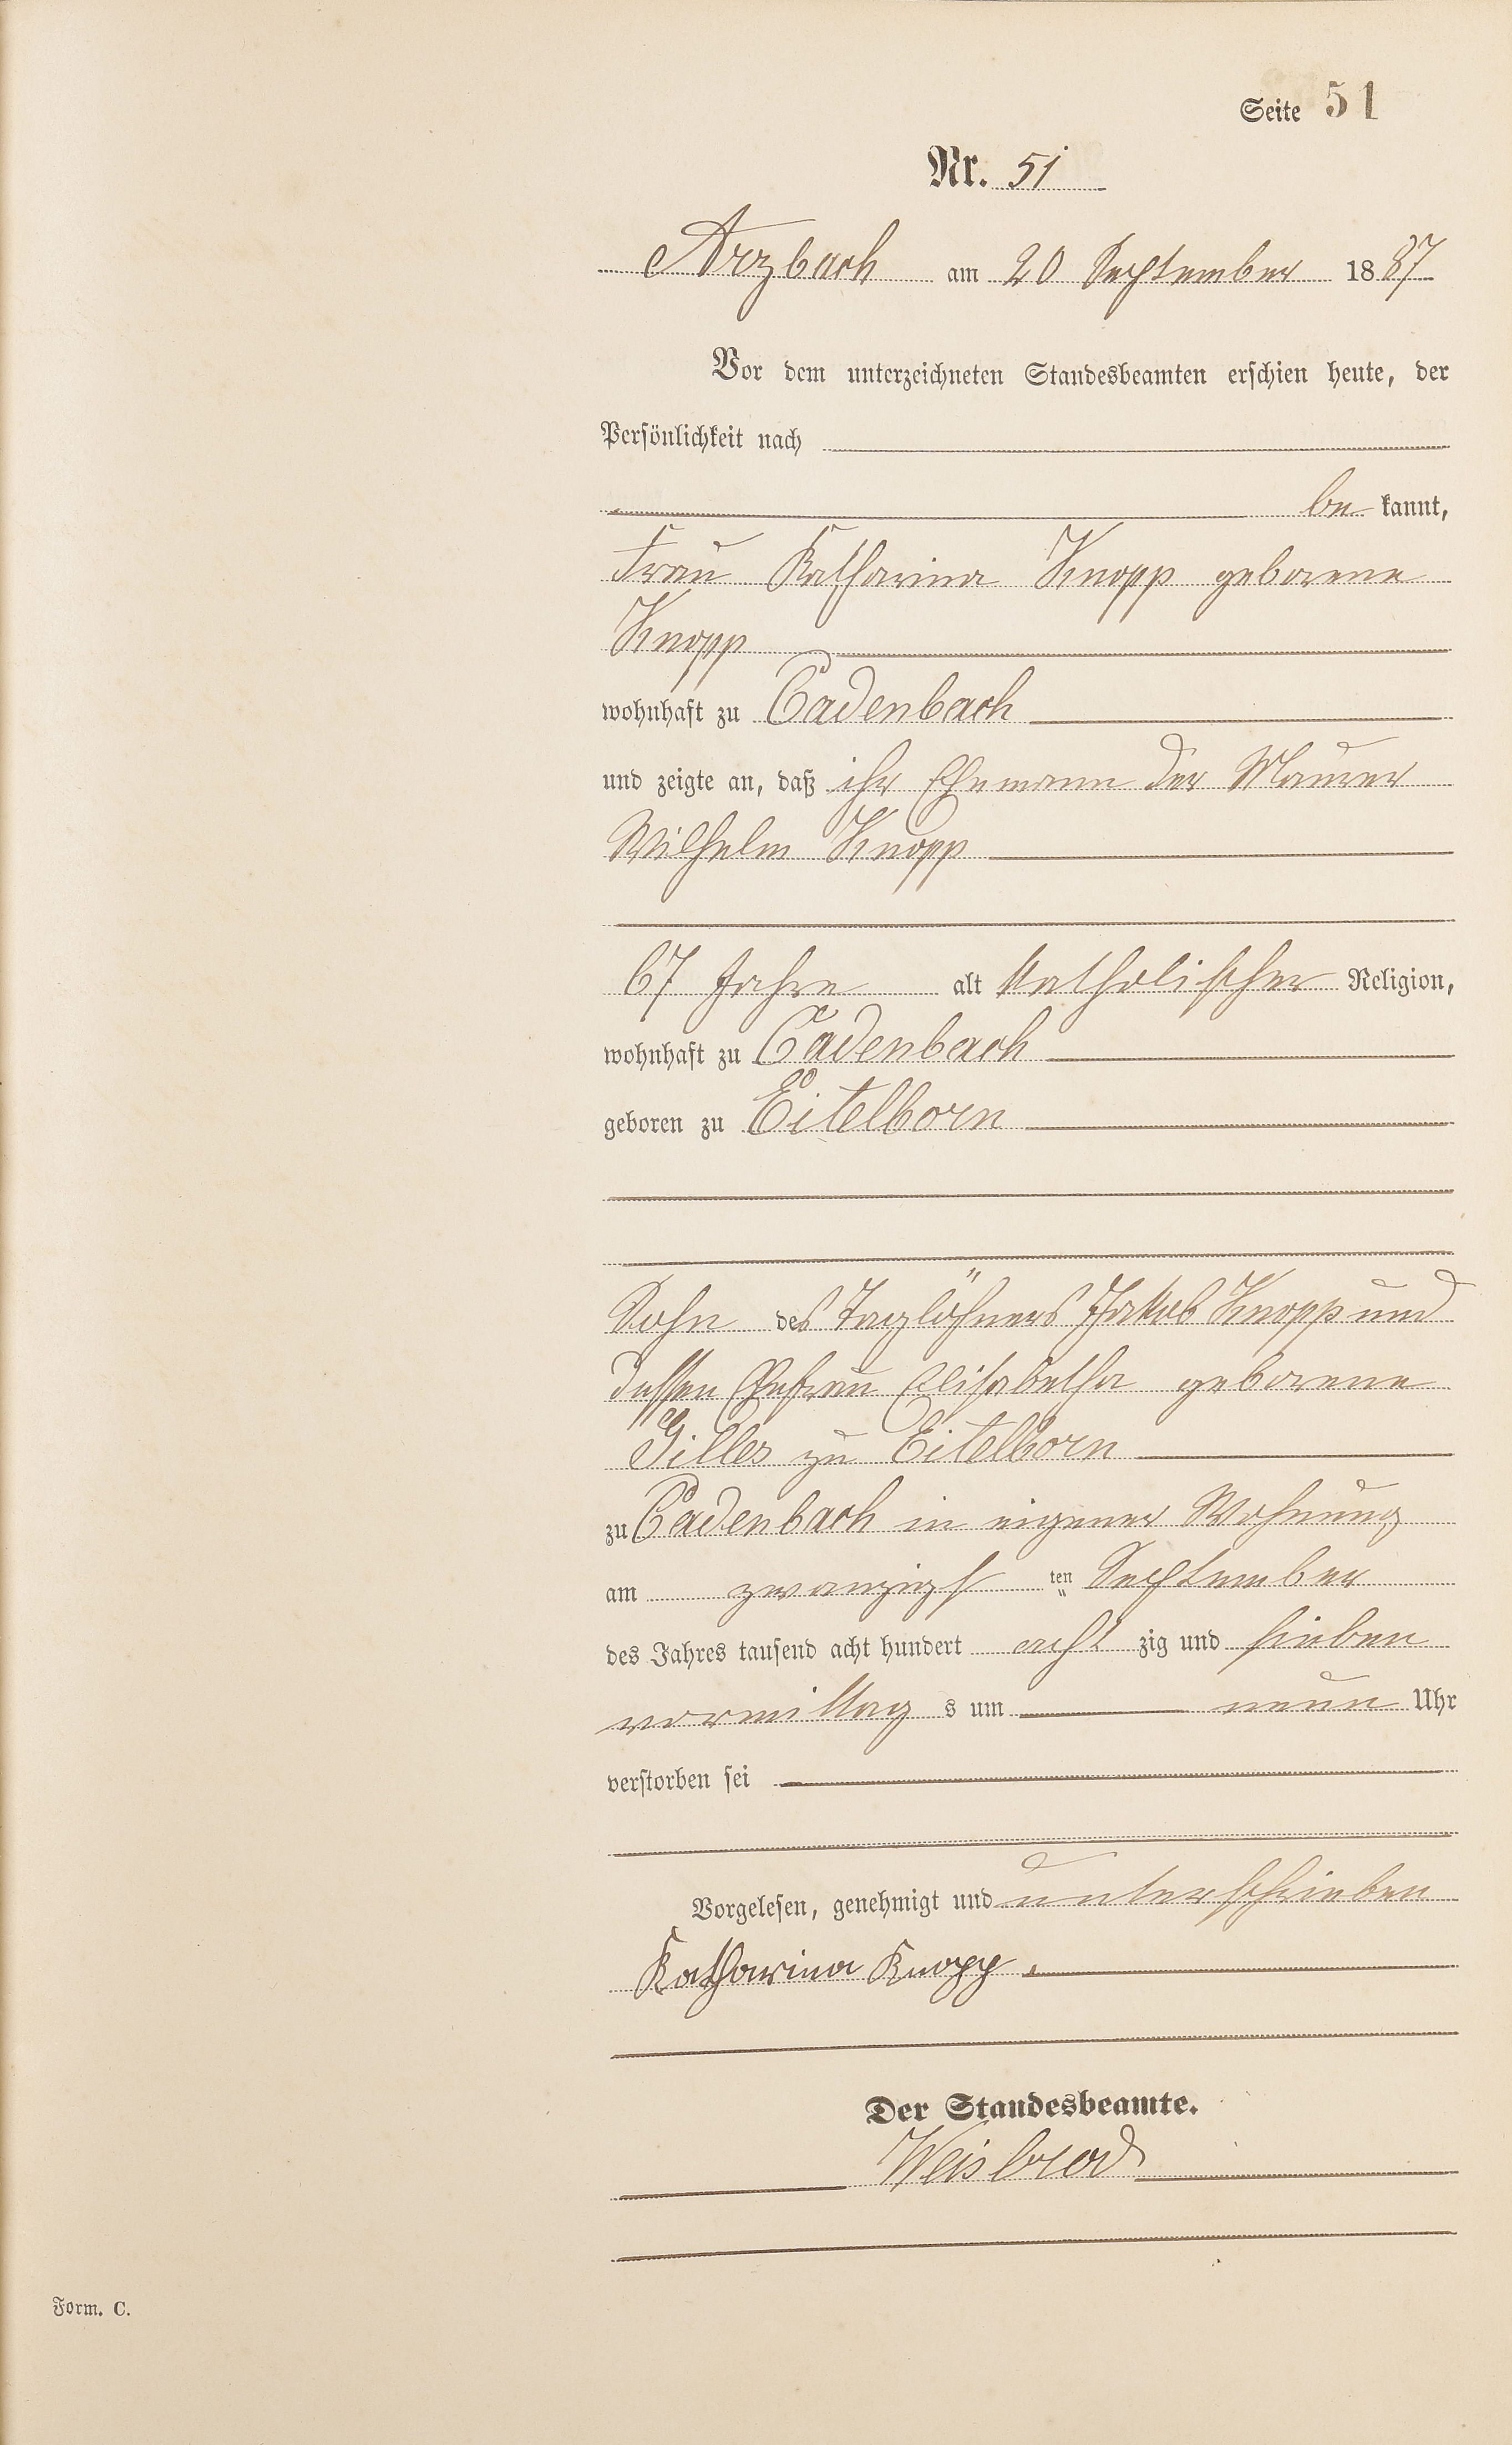 Seite 51
Nr. 51
Arzbach am 20 September 1887
Vor dem unterzeichneten Standesbeamten erschien heute, der
Persönlichkeit nach
be kannt,
Frau Katharina Knopp geborene
Knopp
wohnhaft zu Cadenbach
und zeigte an, daß ihr Ehemann der Maurer
Wilhelm Knopp
67 Jahre alt katholischer Religion,
wohnhaft zu Cadenbach
geboren zu Eitelborn
Sohn des Taglöhners Jakob Knopp und
dessen Ehefrau Elisabetha geborene
Gilles zu Eitelborn
zu Cadenbach in eigener Wohnung
am zwanzigst ten September
des Jahres tausend acht hundert acht zig und sieben
vormittag s um neun Uhr
verstorben sei
Vorgelesen, genehmigt und unterschrieben
Katharina Knopp.
Der Standesbeamte.
Weisbrod
Form. C.